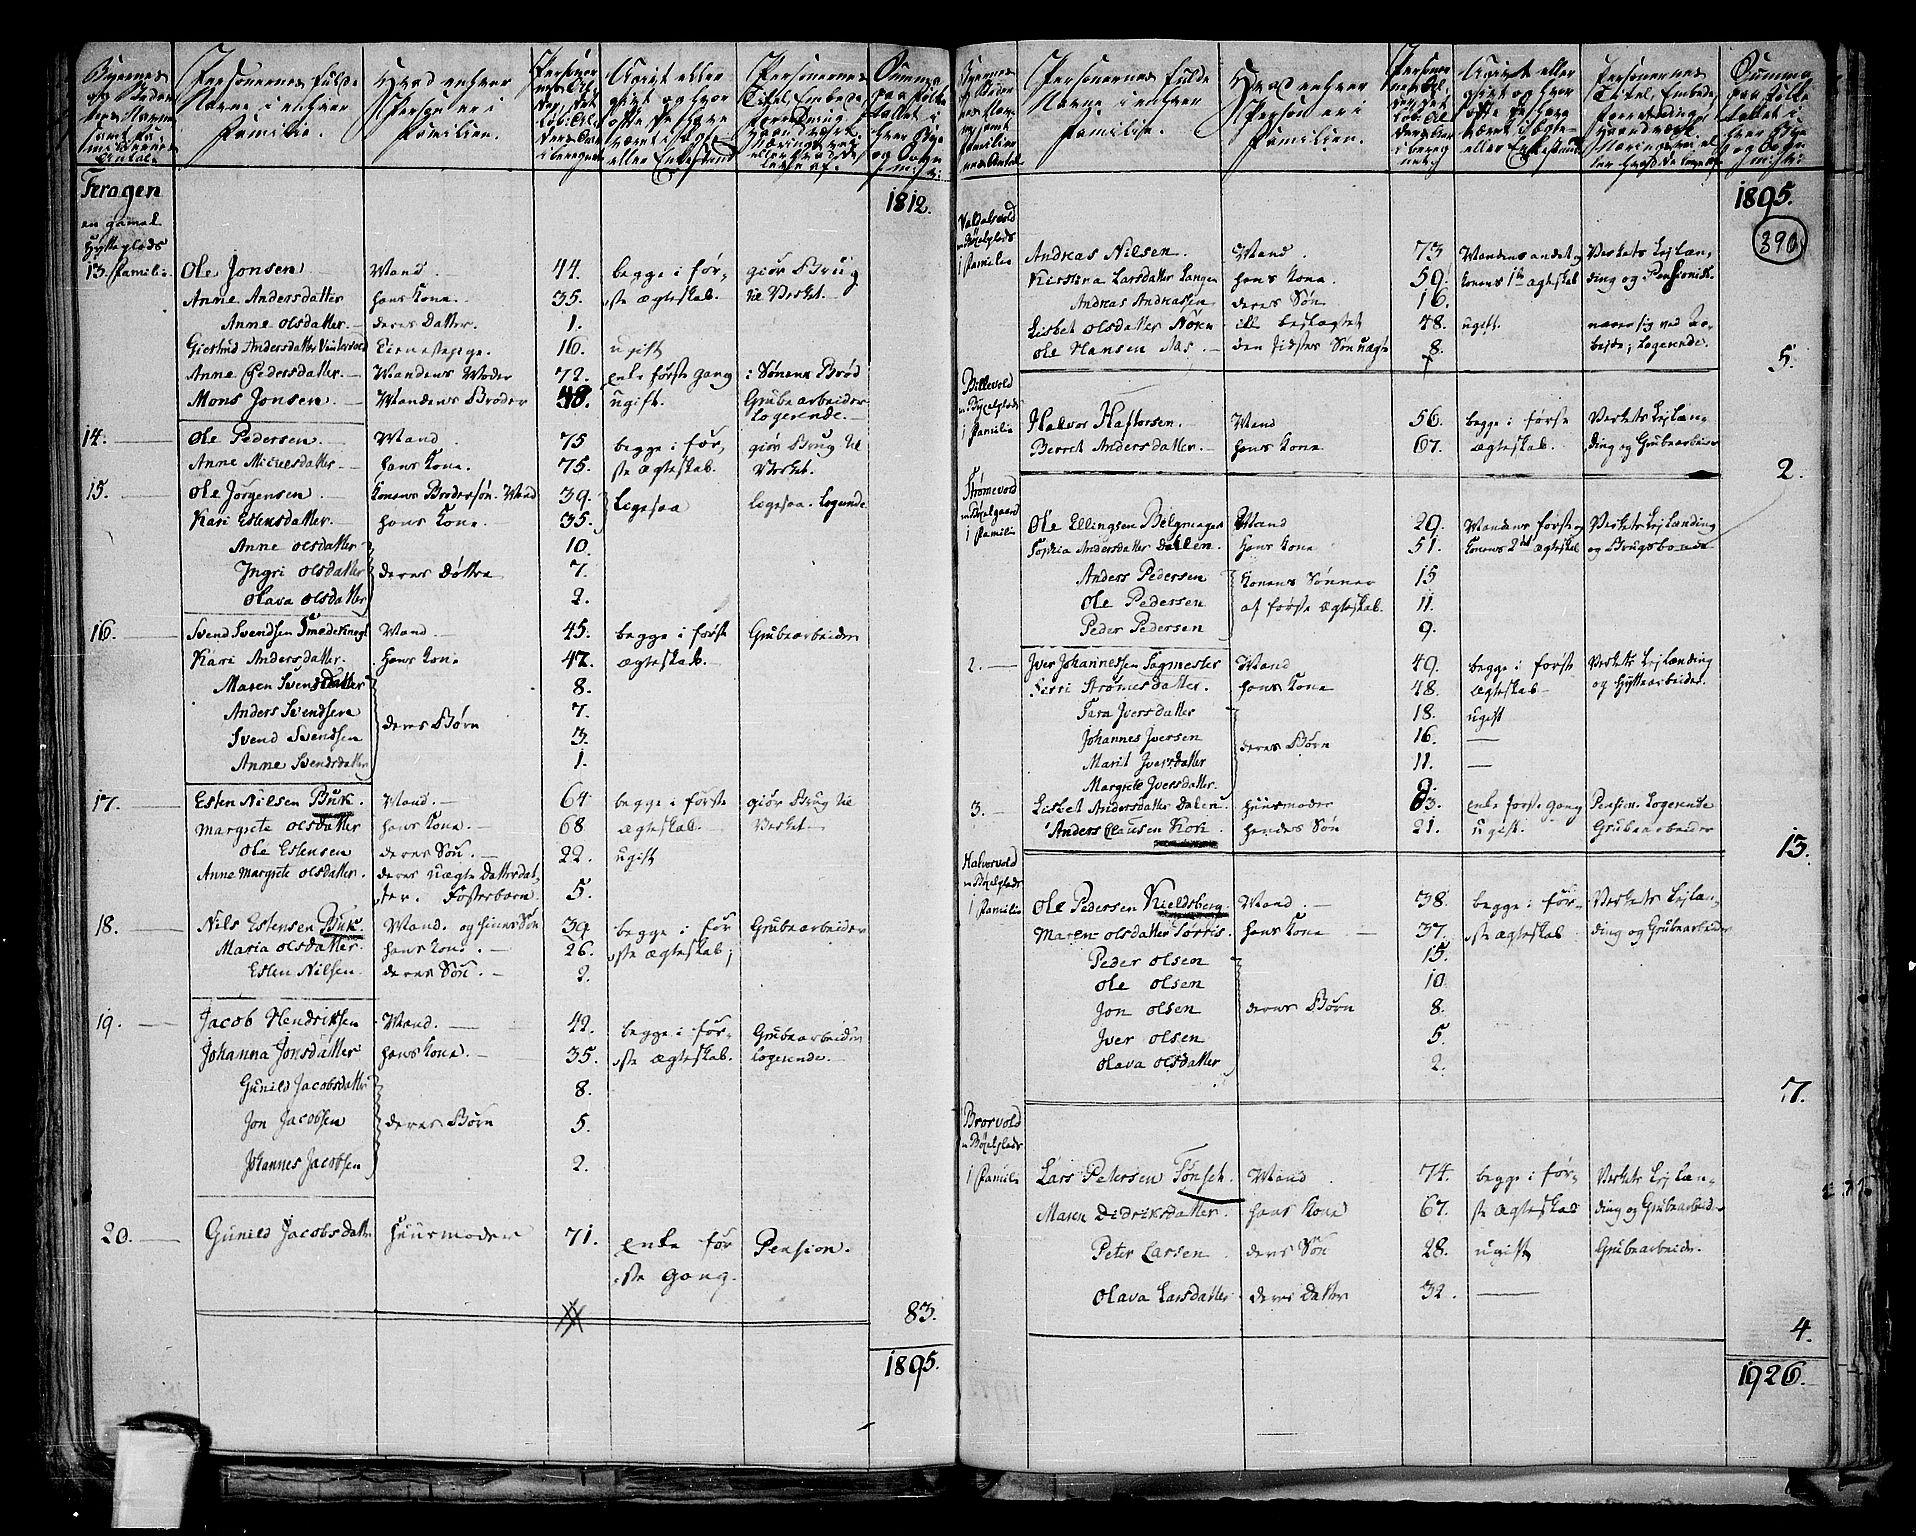 Byernes og Bøndernes Navne samt Familiernes Antal.
Personernes fulde Navne i enhver Familie.
Hvad enhver Person er i Familien.
Gift eller ugift og hvor ofte de have været i Ægte- eller Enkestand
Personernes Titel, Embede, Forretning, Haandværk, Næringsvei eller hvad de leve af.
Feragen
en gamel
Hytteplads
1812.
13. Familie Ole Jonsen Mand. 44. begge i før- giør Brug
Anne Andersdatter hans Kone. 35. ste ægteskab. til Verket.
Anne Olsdatter. deres Datter. 1.
Giertrud Andersdatter Vintervold Tienestepige. 16. ugift
Anne Pedersdatter. Mandens Moder 72. enke første gang i Sønens Brød
Mons Jonsen Mandens Broder 38. ugift. Grubearbeider
logerende.
14. Ole Pedersen. Mand. 75 begge i før- giør Brug til
Anne Michelsdatter hans Kone. 75. ste ægteskab. Verket.
15. Ole Jørgensen Konens Brodersøn. Mand 39. Ligesaa Ligesaa. Logerende
Kari Estensdatter. hans Kone. 35.
Anne Olsdatter 10.
Ingri Olsdatter deres Døttre 7.
Olava Olsdatter 2.
16. Svend Svendsen Smedeknegt Mand. 45. begge i første Grubearbeider
Kari Andersdatter. Hans Kone 47. ægteskab.
Maren Svensdatter 8.
Anders Svendsen deres Børn 7.
Svend Svendsen 3.
Anne Svendsdatter 1.
17. Esten Nilsen Buk. Mand. 64 begge i første giør Brug til
Margrete Olsdatter hans Kone. 68 ægteskab. Verket
Ole Estensen deres Søn. 22. ugift
Anne Margrete Olsdatter. deres uægte Datterdat-
ter. Fosterbarn 5.
18. Nils Estensen Buk. Mand. og hines Søn 39 begge i før Grubearbeider
Maria Olsdatter. hans Kone. 26. ste ægteskab;
Esten Nilsen. deres Søn. 2.
19. Jacob Hendriksen Mand. 42. begge i før- Grubearbeider
Johanna Jonsdatter hans Kone. 35. ste ægteskab. logerende.
Gunild Jacobsdatter 8.
Jon Jacobsen deres Børn 5.
Johannes Jacobsen 2.
20. Gunild Jacobsdatter Huusmoder 71. enke før Pension.
ste gang.
83.
1895.
Personernes fulde Navne i enhver Familie.
Hvad enhver Person er i Familien.
1895.
390.
Valdalsvold
1 Familie
Andreas Nilsen Mand. 73 Mandens andet og Verkets Lejlæn-
Kirstena Larsdatter Langen hans Kone 59. Konens 1te ægteskab ding og Pensionist.
Andreas Andreassen deres Søn 16.
Lisbet Olsdatter ille beslægtet 48. ugift. nærer sig ved Ar-
Ole Hansen Aas. den sidstes Søn uægte 8. bejde; Logerende.
5.
Billevold
1 Familie
Halvor Haftorsen. Mand 56. begge i første Verkets Lejlæn-
Berret Andersdatter. hans Kone 67. ægteskab. ding og Grubearbeider
2.
Strømevold
1 Familie
Ole Ellingsen Mand 29. Mandens første og Verkets Lejlænding
Sophia Andersdatter Dallen. Hans Kone 51. Konens 2det ægteskab og Brugsbonde
Anders Pedersen Konens Sønner 15
Ole Pedersen af første ægteskab. 11.
Peder Pedersen 9.
2. Iver Johannessen Sagmester Mand 49. begge i første Verkets Lejlænding
Strømesdatter. hans Kone 48. ægteskab og Hyttearbeider.
Iversdatter 18. ugift
Johannes Iversen deres Børn 16. —
Marit Iversdatter 11. —
Margrete Iversdatter.
3. Lisbet Andersdatter Dalen Huusmoder 63. enke første gang Pension. Logerende
Anders Clausen Kok. hendes Søn 21. ugift. Grubearbeider
13.
Halvorvold
1 Familie
Ole Pedersen Kieldsberg. Mand. 38. begge i før- Verkets Lejlæn-
Maren Olsdatter Torris. hans Kone 37. ste ægteskab ding og Grubearbeider
Peder Olsen 15.
Ole Olsen 10.
Jon Olsen deres Børn 8.
Iver Olsen 5.
Olava Olsdatter 2.
7.
Brorvold
1 Familie
Lars Petersen Tønset. Mand 74. begge i før- Verkets Lejlæn-
Maren Didriksdatter. hans Kone 67. ste ægteskab ding og Grubearbeider
Peter Larsen. deres Søn 28. ugift Grubearbeider.
Olava Larsdatter deres Datter 32. —
4.
1926.